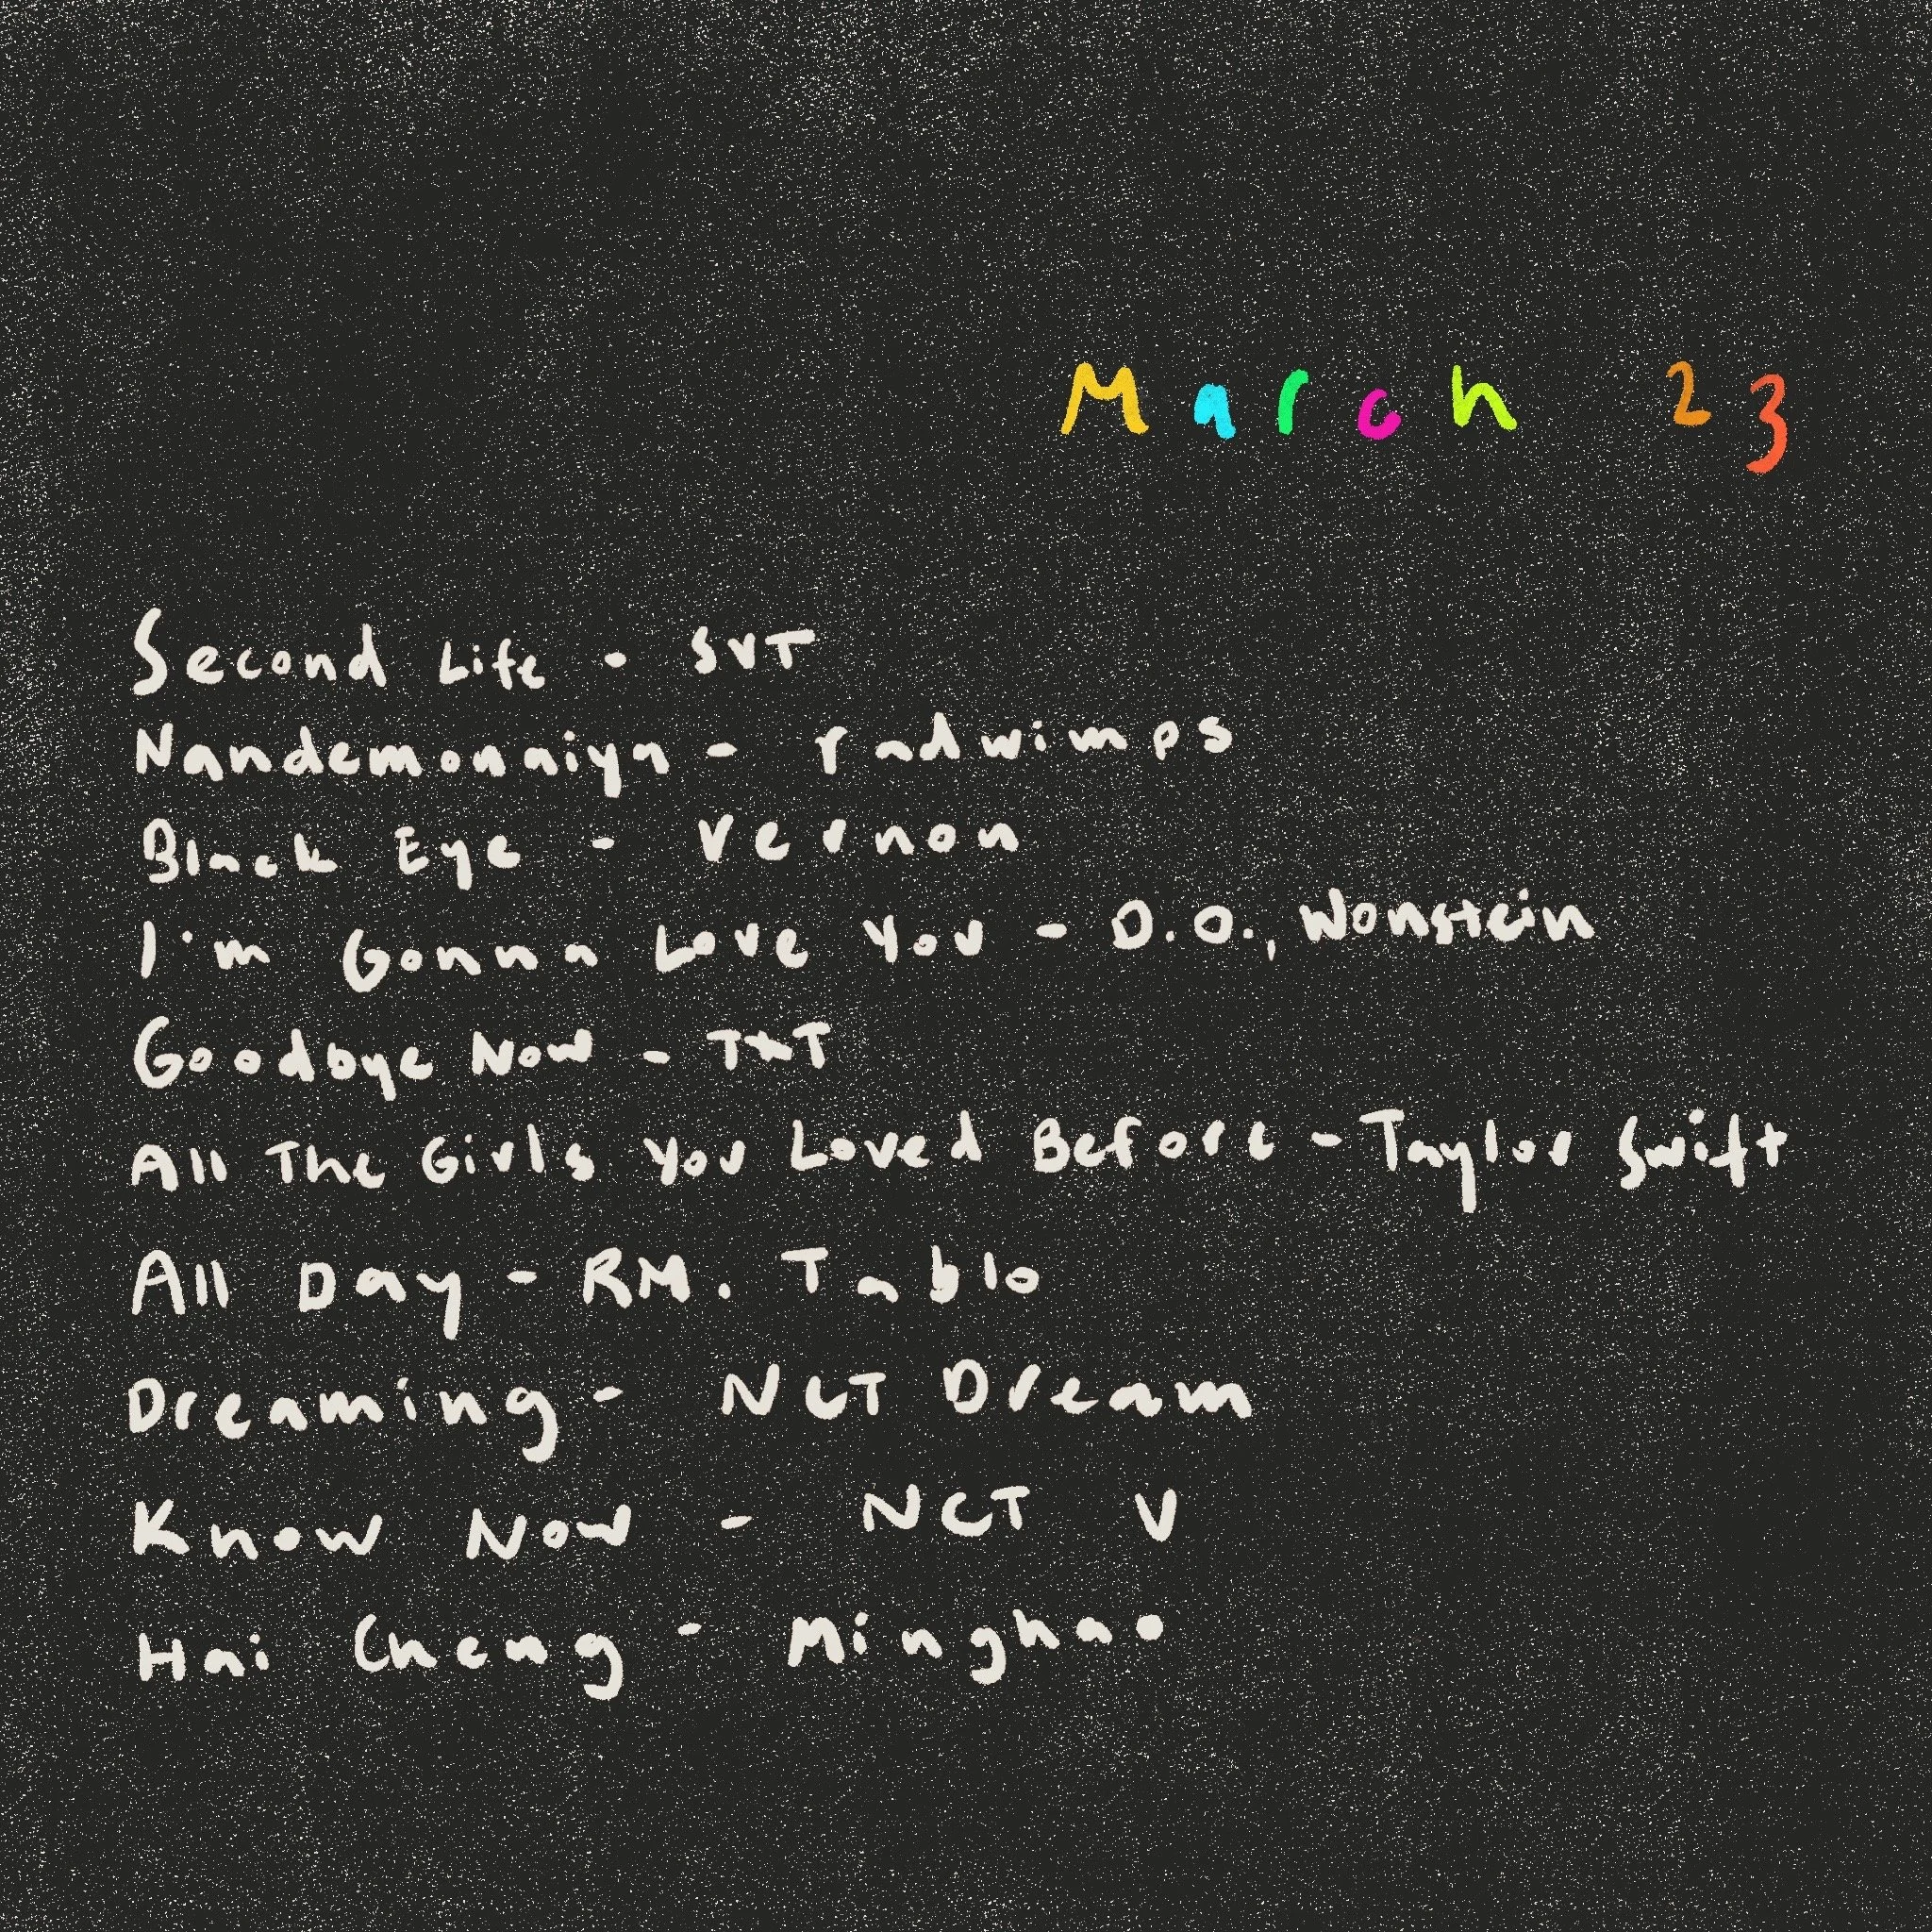 March 23
Second Life - SVT
Nandemonaiya - radwimps
Black Eye - Vernon
I'm Gonna Love You - D.O., Wonstein
Goodbye Now - TXT
All The Girls You Loved Before - Taylor Swift
All Day - RM. Tablo
Dreaming - NCT Dream
Know Now - NCT U
Hai Cheng - Minghao